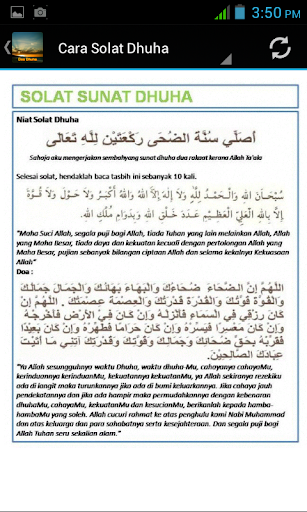 3:50 PM
Doa Dhuha
Cara Solat Dhuha
SOLAT SUNAT DHUHA
Niat Solat Dhuha
أُصَلِّي سُنَّةَ الضُّحَى رَكْعَتَيْنِ لِلَّهِ تَعَالَى
Sahaja aku mengerjakan sembahyang sunat dhuha dua rakaat kerana Allah Ta'ala
Selesai solat, hendaklah baca tasbih ini sebanyak 10 kali.
سُبْحَانَ اللهِ وَالْحَمْدُ لِلَّهِ وَلاَ إِلَهَ إِلاَّ اللهُ وَاللهُ أَكْبَرُ وَلاَ حَوْلَ وَلاَ قُوَّةَ
إِلاَّ بِاللهِ الْعَلِيِّ الْعَظِيْمِ عَدَدَ خَلْقِ اللهِ وَبِدَوَامِ مُلْكِ اللهِ.
"Maha Suci Allah, segala puji bagi Allah, tiada Tuhan yang lain melainkan Allah, Allah
yang Maha Besar, tiada daya dan kekuatan kecudi dengan pertolongan Allah yang
Maha Besar, pujian sebanyak bilangan ciptaan Allah dan selama kekalnya Kekuasaan
Allah"
Doa :
اَللَّهُمَّ إِنَّ الضُّحَآءَ ضُحَاءُكَ وَالْبَهَاءَ بَهَائُكَ وَالْجَمَالَ جَمَالُكَ
وَالْقُوَّةَ قُوَّتُكَ وَالْقُدْرَةَ قُدْرَتُكَ وَالْعِصْمَةَ عِصْمَتُكَ . اَللَّهُمَّ إِنْ
كَانَ رِزْقِي فِي السَّمَاءِ فَأَنْزِلْهُ وَإِنْ كَانَ فِي الْأَرْضِ فَأَخْرِجْهُ
وَإِنْ كَانَ مُعَسَّرًا فَيَسِّرْهُ وَإِنْ كَانَ حَرَامًا فَطَهِّرْهُ وَإِنْ كَانَ بَعِيْدًا
فَقَرِّبْهُ بِحَقِّ ضُحَائِكَ وَجَمَالِكَ وَقُوَّتِكَ وَقُدْرَتِكَ آتِنِي مَا آتَيْتَ
عِبَادَكَ الصَّالِحِيْنَ.
"Ya Allah sesungguhnya waktu Dhuha, waktu dhuha-Mu, cahayanya cahayaMu,
kerinduannya kerinduanMu, kekuatannya kekuatanMu, ya Allah sekiranya rezekiku
ada di langit maka turunkannya jika ada di bumi keluarkannya. Jika cahaya jauh
pendekatannya dan jika ada hampir maka permudahkannya dengan kebenaran
dhuhaMu, cahayaMu, kekuatanMu dan kesucianMu, berikanlah kepada hamba-
hambaMu yang soleh. Allah cucuri rahmat ke atas penghulu kami Nabi Muhammad
dan atas keluarga dan para sahabatnya serta kesejahteraan. Dan segala puji bagi
Allah Tuhan seru sekalian alam."